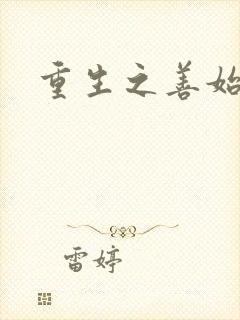 重生之善始
雷婷